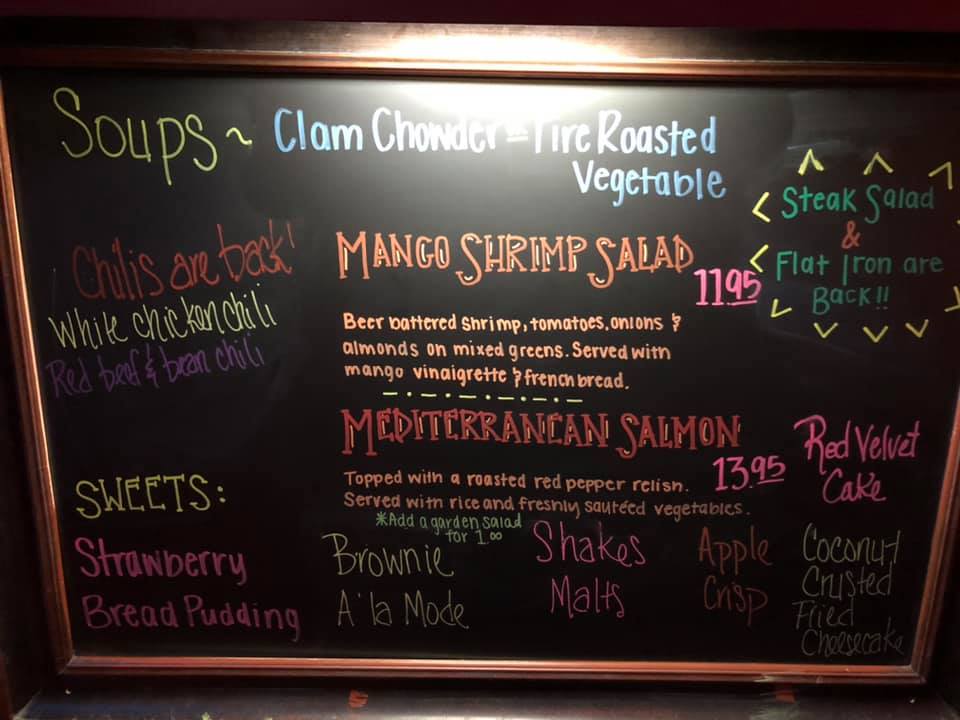 Soups ~ Clam Chowder - Fire Roasted
Vegetable
Steak Salad
&
Flat Iron are
Back!!
Chilis are back!
White chicken chili
Red beef & bean chili
Mango Shrimp Salad
11.95
Beer battered shrimp, tomatoes, onions &
almonds on mixed greens. Served with
mango vinaigrette & french bread.
Mediterranean Salmon
13.95
Topped with a roasted red pepper relish.
Served with rice and freshly sautéed vegetables.
*Add a garden salad
for 1.00
Sweets:
Strawberry
Bread Pudding
Brownie
A' la Mode
Shakes
Malts
Apple
Crisp
Red Velvet
Cake
Coconut
Crusted
Fried
Cheesecake